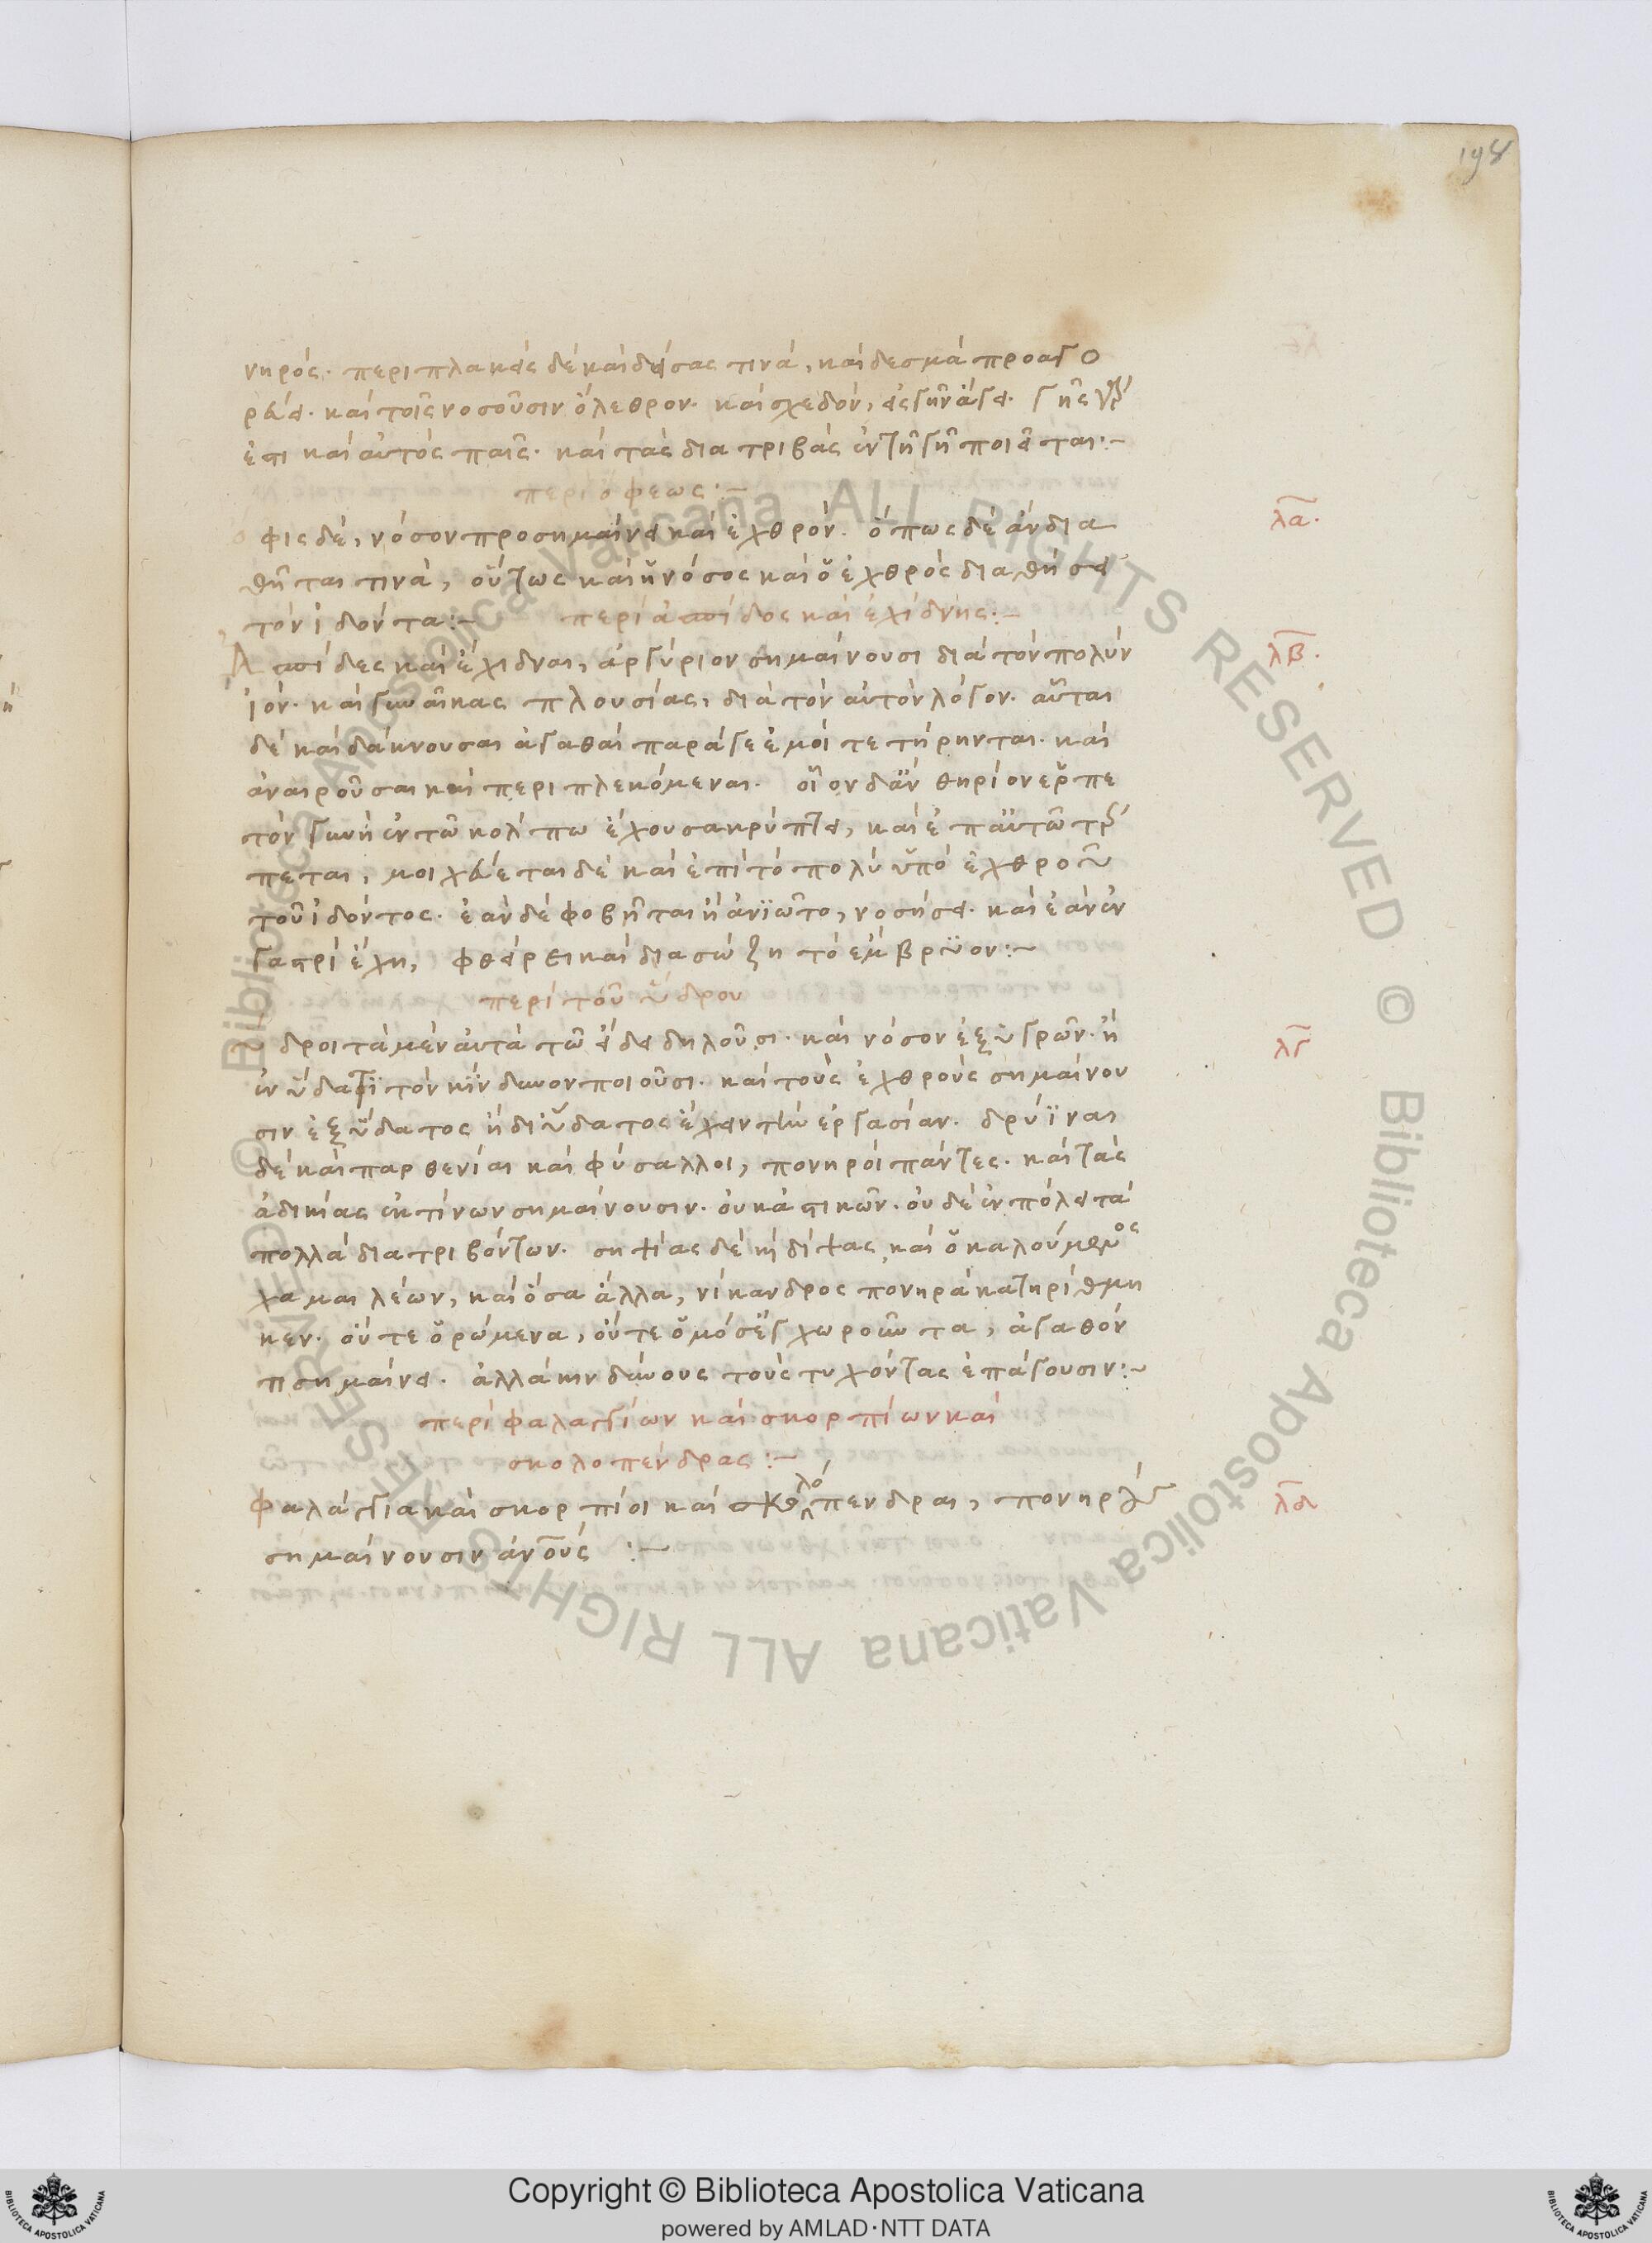 198
νηρός. περιπλακεὶς δὲ καὶ δήσας τινά, καὶ δεσμὰ προαγο
ρεύει. καὶ τοῖς νοσοῦσιν ὄλεθρον. καὶ σχεδὸν, εἰς γῆν ἄγει. γῆς γὰρ
ἐστι καὶ αὐτὸς παῖς. καὶ τὰς διατριβὰς ἐν τῇ γῇ ποιεῖται:~
περὶ ὄφεως:~
λα.
ὄφις δὲ, νόσον προσημαίνει καὶ ἐχθρόν. ὅπως δὲ ἂν δια
θῆται τινὰ, οὕτως καὶ ἡ νόσος καὶ ὁ ἐχθρὸς διαθήσει
τὸν ἰδόντα:~ περὶ ἀσπίδος καὶ ἐχίδνης:~
λβ.
Ἀσπίδες καὶ ἔχιδναι, ἀργύριον σημαίνουσι διὰ τὸν πολὺν
ἰόν. καὶ γυναῖκας πλουσίας, διὰ τὸν αὐτὸν λόγον. αὗται
δὲ καὶ δάκνουσαι ἀγαθαὶ παρά γε ἐμοὶ τετήρηνται. καὶ
ἀναιροῦσαι καὶ περιπλεκόμεναι. οἷον δἂν θηρίον ἑρπε
τὸν γυνὴ ἐν τῷ κόλπω ἔχουσα κρύπτει, καὶ ἐπ αὐτῷ τέρ
πεται, μοιχεύεται δὲ καὶ ἐπὶ τὸ πολὺ ὑπὸ ἐχθροῦ
τοῦ ἰδόντος. ἐὰν δὲ φοβῆται ἢ ἀνιῶτο, νοσήσει. καὶ ἐὰν ἐν
γαστρὶ ἔχη, φθείρει καὶ διασώζη τὸ ἔμβρυον:~
περὶ τοῦ ὕδρου
λγ
ὕδροι τὰ μὲν αὐτὰ τῷ εἴδει δηλοῦσι. καὶ νόσον ἐξ ὑγρῶν. ἢ
ἐν ὕδατι τὸν κίνδυνον ποιοῦσι. καὶ τοὺς ἐχθροὺς σημαίνου
σιν ἐξ ὕδατος ἢ δι ὕδατος ἔχειν τὴν ἐργασίαν. δρύϊναι
δὲ καὶ παρθενίαι καὶ φύσαλλοι, πονηροὶ πάντες. καὶ τὰς
ἀδικίας ἐκ τίνων σημαίνουσιν. οὐκ ἀστικῶν. οὐδὲ ἐν πόλει τὰ
πολλὰ διατριβόντων. σηψίας δὲ ἢ δίψας, καὶ ὁ καλούμενος
χαμαιλέων, καὶ ὅσα ἄλλα, νίκανδρος πονηρὰ κατηρίθμη
κεν. οὔτε ὁρώμενα, οὔτε ὁμόσε ἐγχωροῦντα, ἀγαθόν
τι σημαίνει. ἀλλὰ κινδύνους τοὺς τυχόντας ἐπάγουσιν:~
περὶ φαλαγγίων καὶ σκορπίων καὶ
σκολοπένδρας:~
λδ
φαλάγγια καὶ σκορπίοι καὶ σκολόπενδραι, πονηροὺς
σημαίνουσιν ἀνους:~
Copyright © Biblioteca Apostolica Vaticana
powered by AMLAD·NTT DATA